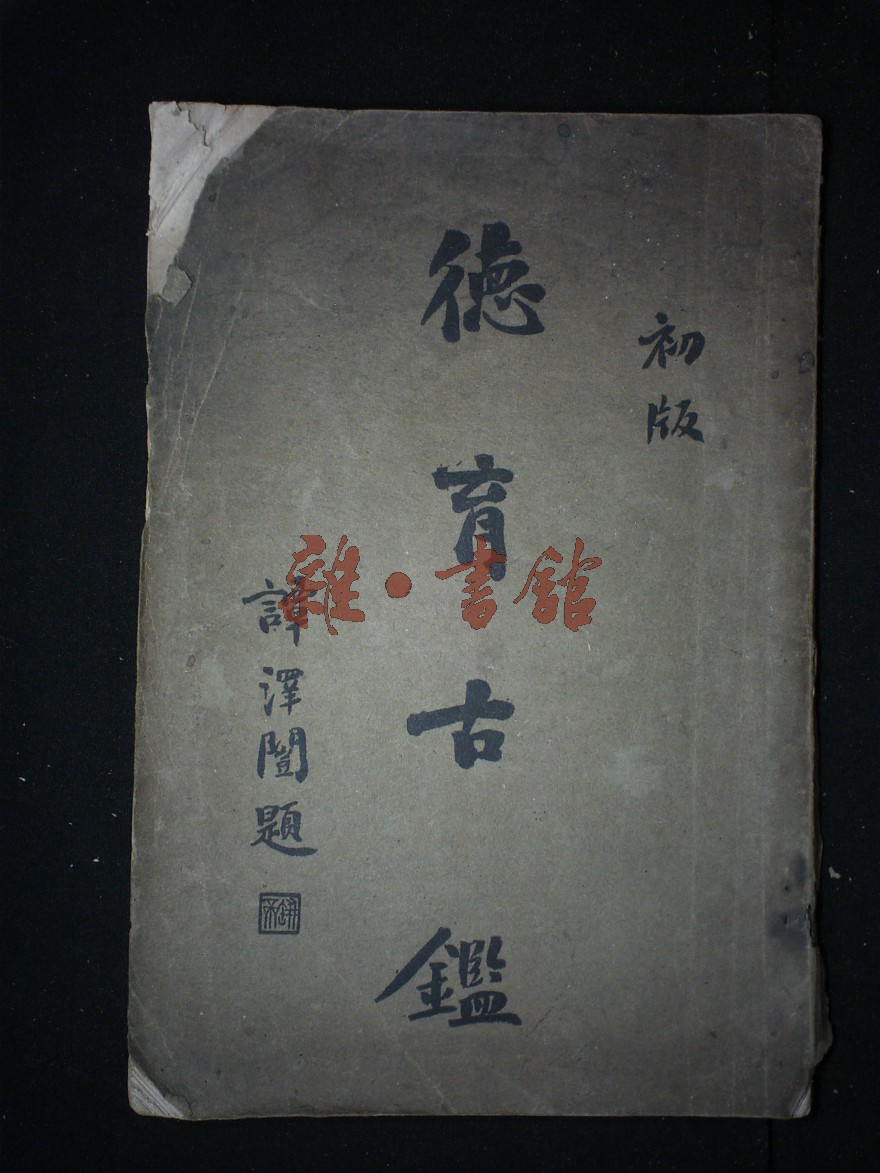 初版
德育古鑑
譚澤闓題
雜·書館